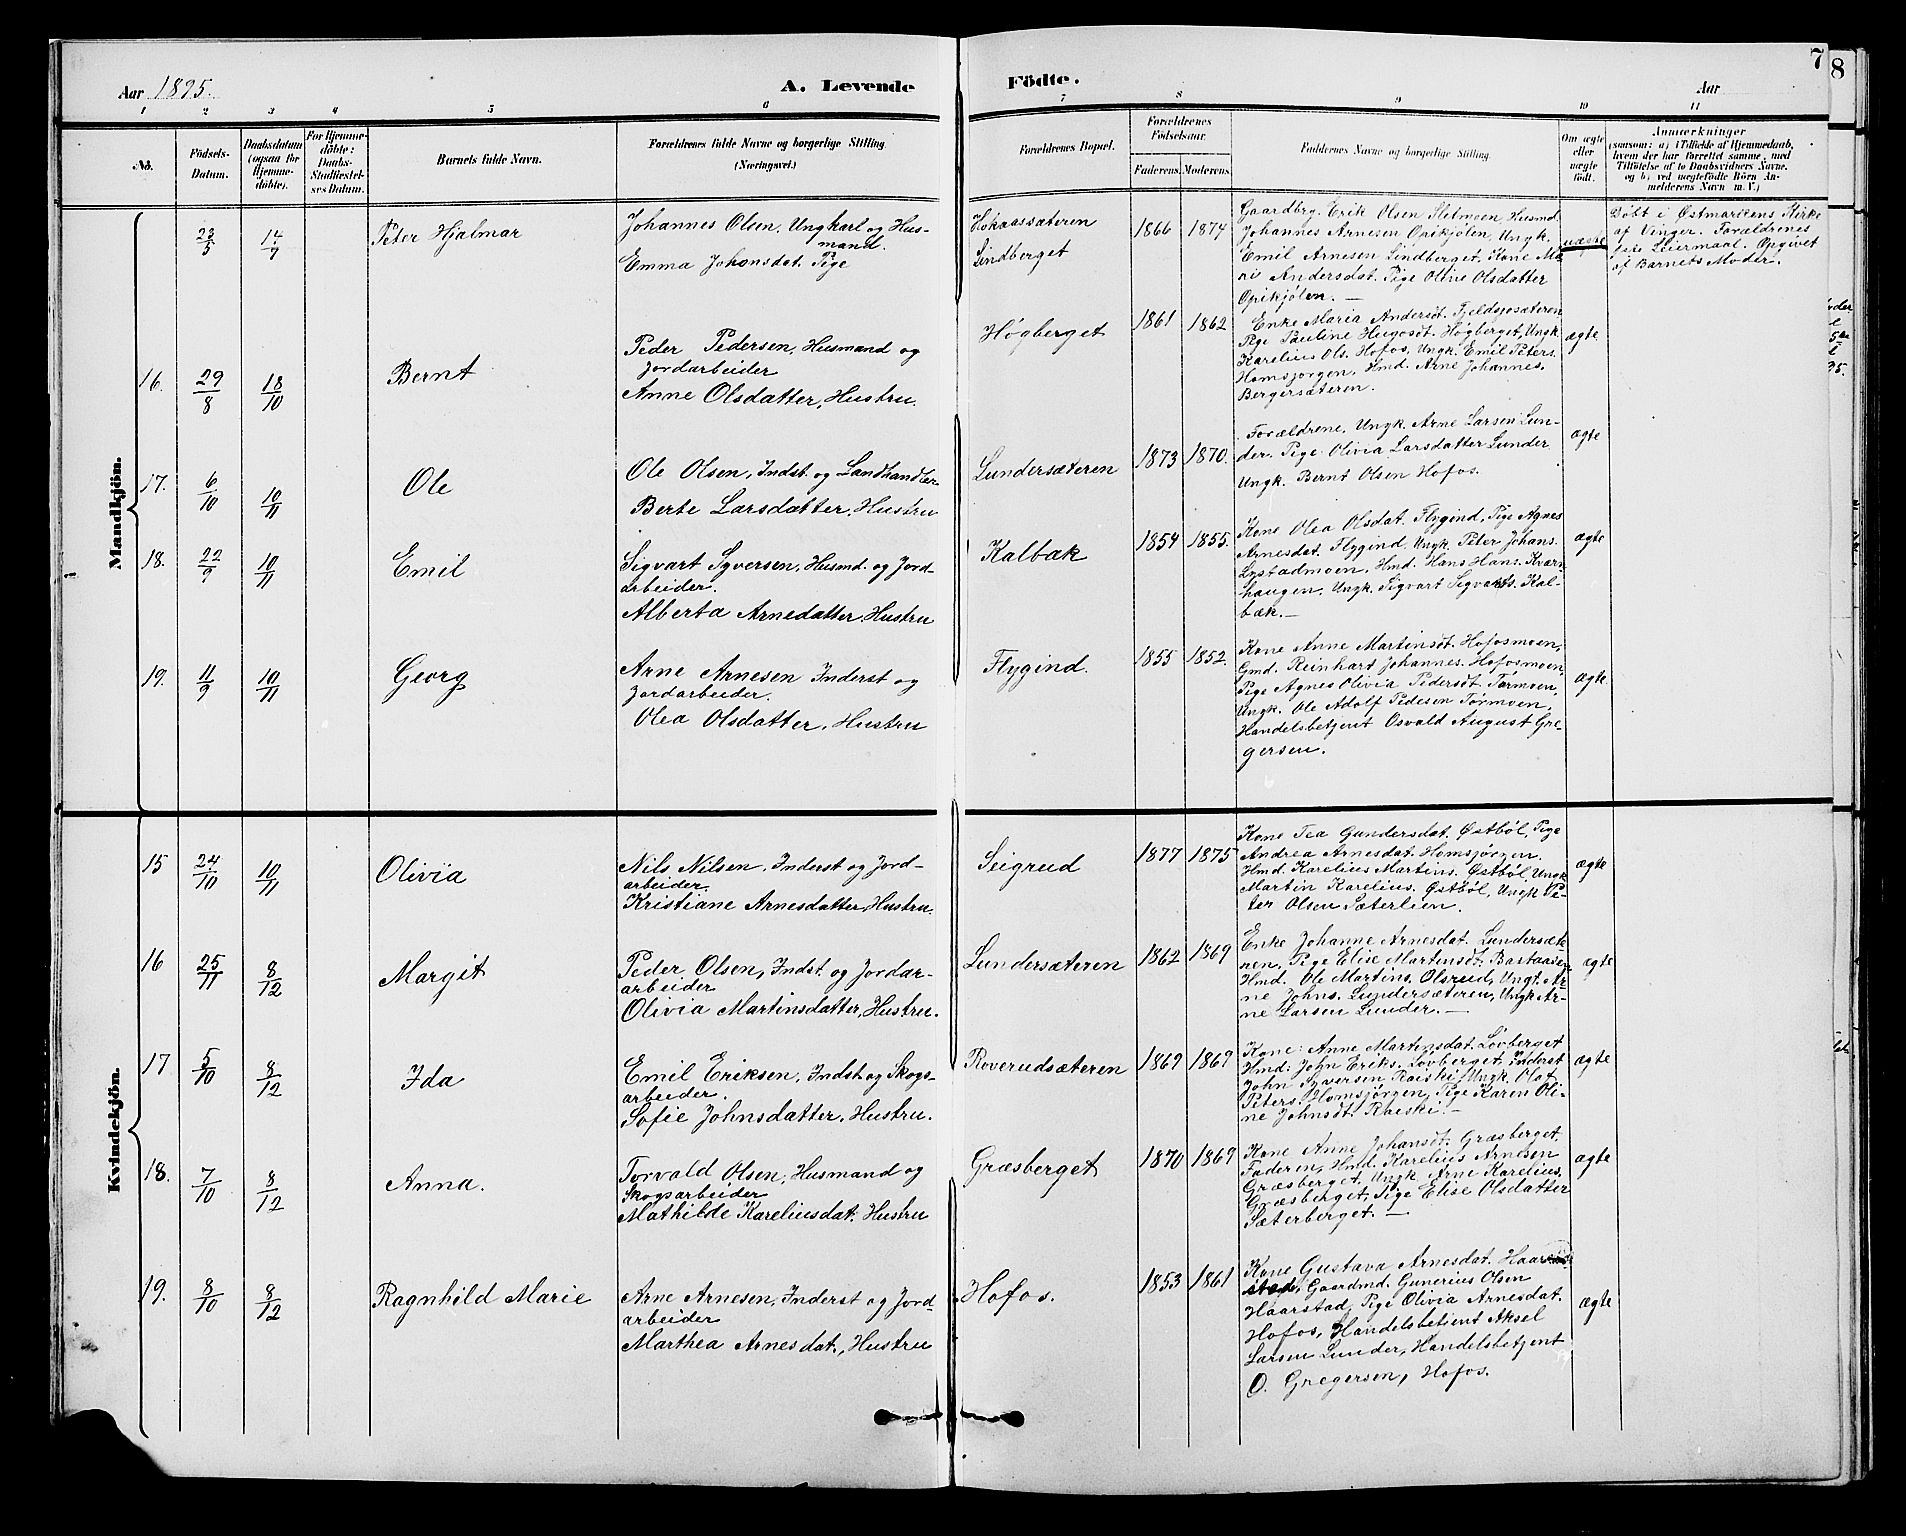 7
8
Aar 1895.
A. Levende
Födte.
Aar
1 2 3 4 5 6 7 8 9 10 11
No.
Födsels-
Datum.
Daabsdatum
(ogsaa for
Hjemme-
döbte).
For Hjemme-
döbte:
Daabs-
Stadfæstel-
ses Datum.
Barnets fulde Navn.
Forældrenes fulde Navne og borgerlige Stilling
(Næringsvei.)
Forældrenes Bopæl.
Forældrenes
Födselsaar.
Faderens. Moderens.
Faddernes Navne og borgerlige Stilling.
Om ægte
eller
uægte
födt.
Anmærkninger
(saasom: a) i Tilfælde af Hjemmedaab,
hvem der har forrettet samme, med
Tilföielse af to Daabsvidners Navne,
og b) ved uægtefödte Börn An-
melderens Navn m. V.)
Mandkjön.
23/5 14/7 Peter Hjalmar
Johannes Olsen. Ungkarl og Hus-
mand.
Emma Johansdat. Pige
Hokaassæteren
Lindberget
1866 1874
Gaardbrg. Erik Olsen Sletmoen, Husmd.
Johannes Arnesen Opikjølen, Ungk.
Emil Arnesen Lindberget. Kone Ma-
ri Andersdat. Pige Oline Olsdatter
Opikjølen. —
uægte
Døbt i Østmarkens Kirke
af Vinger. Forældrenes
1ste Leiermaal. Opgivet
af Barnets Moder.
16. 29/8 18/10 Bernt
Peder Pedersen, Husmand og
Jordarbeider
Anne Olsdatter, Hustru.
Høgberget
1861 1862
Enke Maria Andersdt. Fjeldsjøsæteren
Pige Pauline Hugosdt. Høgberget, Ungk.
Karelius Ols. Hofos, Ungk. Emil Peters.
Homsjørgen, Hmd. Arne Johannes.
Bergersæteren.
ægte
17. 6/10 10/11 Ole
Ole Olsen, Indst. og Landhandler
Berte Larsdatter, Hustru
Lundersæteren
1873 1870.
Forældrene, Ungk. Arne Larsen Lun-
der. Pige Olivia Larsdatter Lunder
Ungk. Bernt Olsen Hofos.
ægte
18. 22/9 10/11 Emil
Sigvart Syversen, Husmd. og Jord-
arbeider.
Alberta Arnedatter, Hustru
Kalbæk
1854 1855.
Kone Olea Olsdat. Flygind, Pige Agnes
Arnesdat. Flygind. Ungk. Peter Johans.
Lystadmoen, Hmd. Hans Hans. Kværn-
haugen, Ungk. Sigvart Sigvarts. Kal-
bæk. —
ægte
19. 11/9 10/11 Georg
Arne Arnesen Inderst og
Jordarbeider.
Olea Olsdatter, Hustru
Flygind.
1855 1852.
Kone Anne Martinsdt. Hofosmoen,
Gmd. Reinhart Johannes. Hofosmoen,
Pige Agnes Olivia Pedersdt. Tørmoen,
Ungk. Ole Adolf Pedesen Tørmoen,
Handelsbetjent Osvald August Gre-
gersen.
ægte
Kvindekjön.
15 24/10 10/11 Olivia
Nils Nilsen, Inderst og Jord-
arbeider.
Kristiane Arnesdatter, Hustru.
Seigrud
1877 1875
Kone Tea Gundersdat. Østbøl, Pige
Andrea Arnesdat. Homsjørgen.
Hmd. Karelius Martins. Østbøl Ungk
Martin Karelius. Østbøl, Ungk Pe-
ter Olsen Sæterlien.
ægte
16 25/11 8/12 Margit
Peder Olsen, Indst. og Jordar-
arbeider
Olivia Martinsdatter, Hustru.
Lundersæteren
1862 1869
Enke Johanne Arnesdat. Lundersæte-
nen, Pige Elise Martinsdt. Bastaasen
Hmd. Ole Martins. Olsrud, Ungk. Ar-
ne Johns. Lundersæteren, Ungk Ar-
ne Larsen Lunder. —
ægte
17 5/10 8/12 Ida
Emil Eriksen, Indst. og Skogs-
arbeider.
Sofie Johnsdatter, Hustru.
Roverudsæteren
1869 1869
Kone: Anne Martinsdat. Løvberget
Hmd: John Eriks. Løvberget. Inderst
John Syversen Raiski, Ungk. Olaf
Peters. Homsjørgen, Pige Karen Oli-
ne Johnsdt. Raiski. —
ægte
18. 7/10 8/12 Anna.
Torvald Olsen, Husmand og
Skogsarbeider
Mathilde Kareliusdat. Hustru
Græsberget
1870 1869
Kone Anne Johansdt. Græsberget,
Faderen, Hmd. Karelius Arnesen
Græsberget. Ungk Arne Karelius.
Græsberget, Pige Elise Olsdatter
Sæterberget. —
ægte
19. 8/10 8/12 Ragnhild Marie
Arne Arnesen, Inderst og Jord-
arbeider
Marthea Arnesdat., Hustru
Hofos.
1853 1861
Kone Gustava Arnesdat. Haar-
stad, Gaardmd. Gunerius Olsen
Haarstad, Pige Olivia Arnesdat.
Hofos, Handelsbetjent Aksel
Larsen Lunder, Handelsbetjent
O. Gregersen, Hofos.
ægte